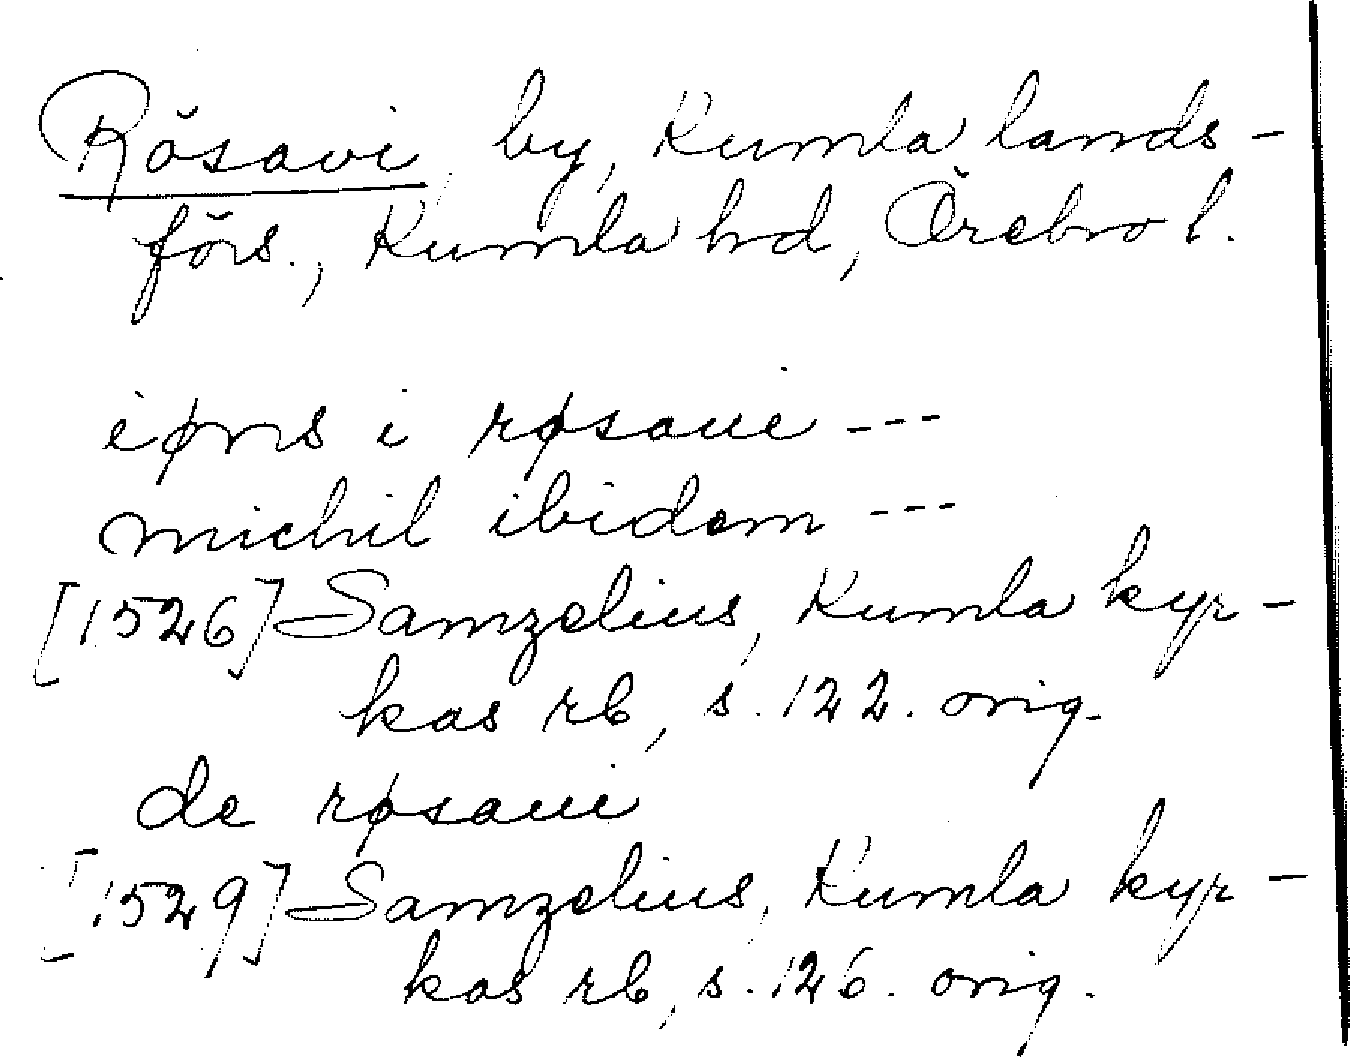 Rösavi, by, Kumla lands-
förs., Kumla hd, Örebro l.
iøns i røsaue ---
michil ibidem ---
[1526] Samzelius, Kumla kyr-
kas rb, s. 122. orig.
de røsaui
[1529] Samzelius, Kumla kyr-
kas rb, s. 126. orig.